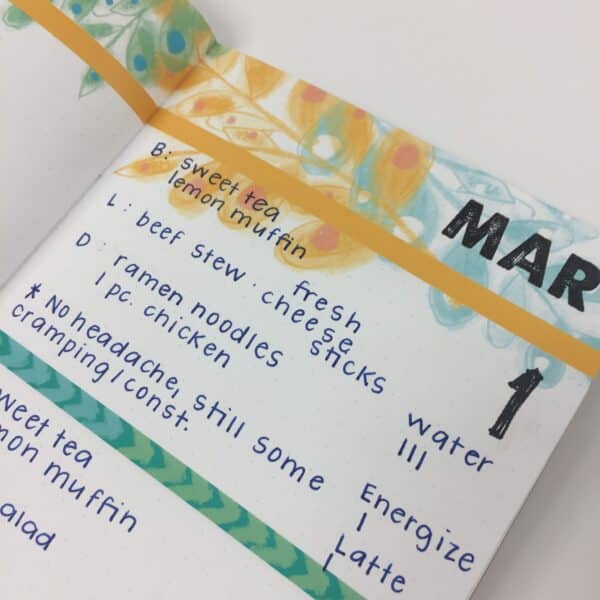 MAR
1
B: sweet tea
lemon muffin
L: beef stew. fresh
cheese
sticks
D: ramen noodles
1 pc. chicken
* No headache, still some
cramping / const.
water
III
Energize
I
Latte
I
sweet tea
lemon muffin
salad